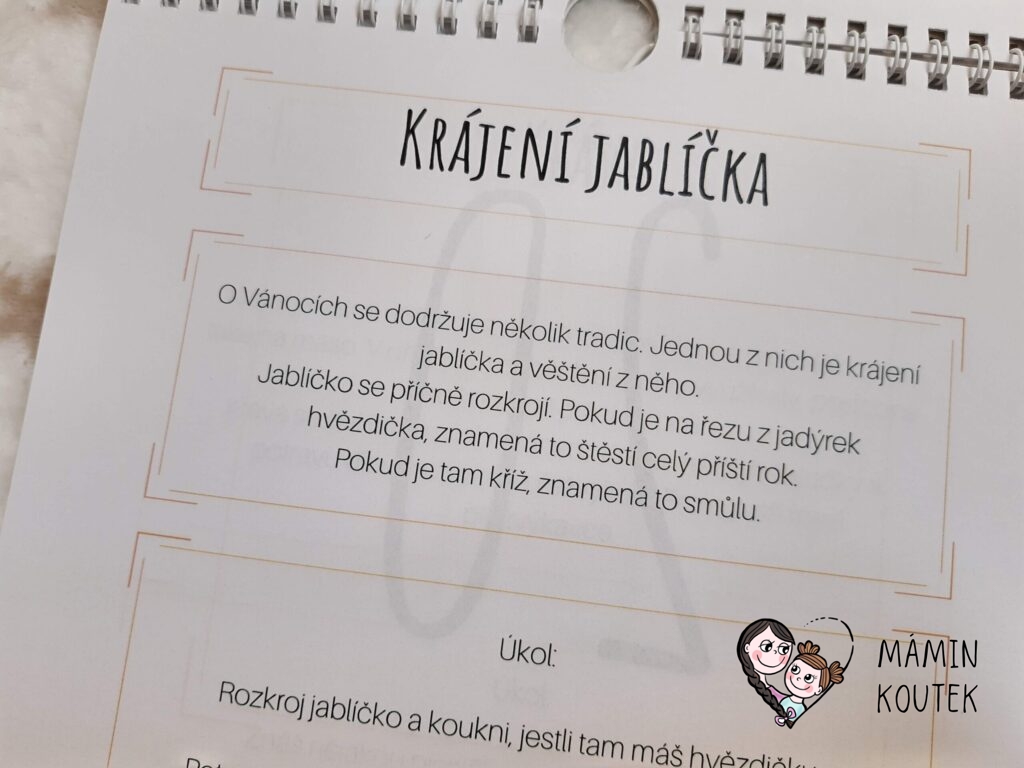 Krájení jablíčka
O Vánocích se dodržuje několik tradic. Jednou z nich je krájení
jablíčka a věštění z něho.
Jablíčko se příčně rozkrojí. Pokud je na řezu z jadýrek
hvězdička, znamená to štěstí celý příští rok.
Pokud je tam kříž, znamená to smůlu.
Úkol:
Rozkroj jablíčko a koukni, jestli tam máš hvězdičku
MÁMIN
KOUTEK